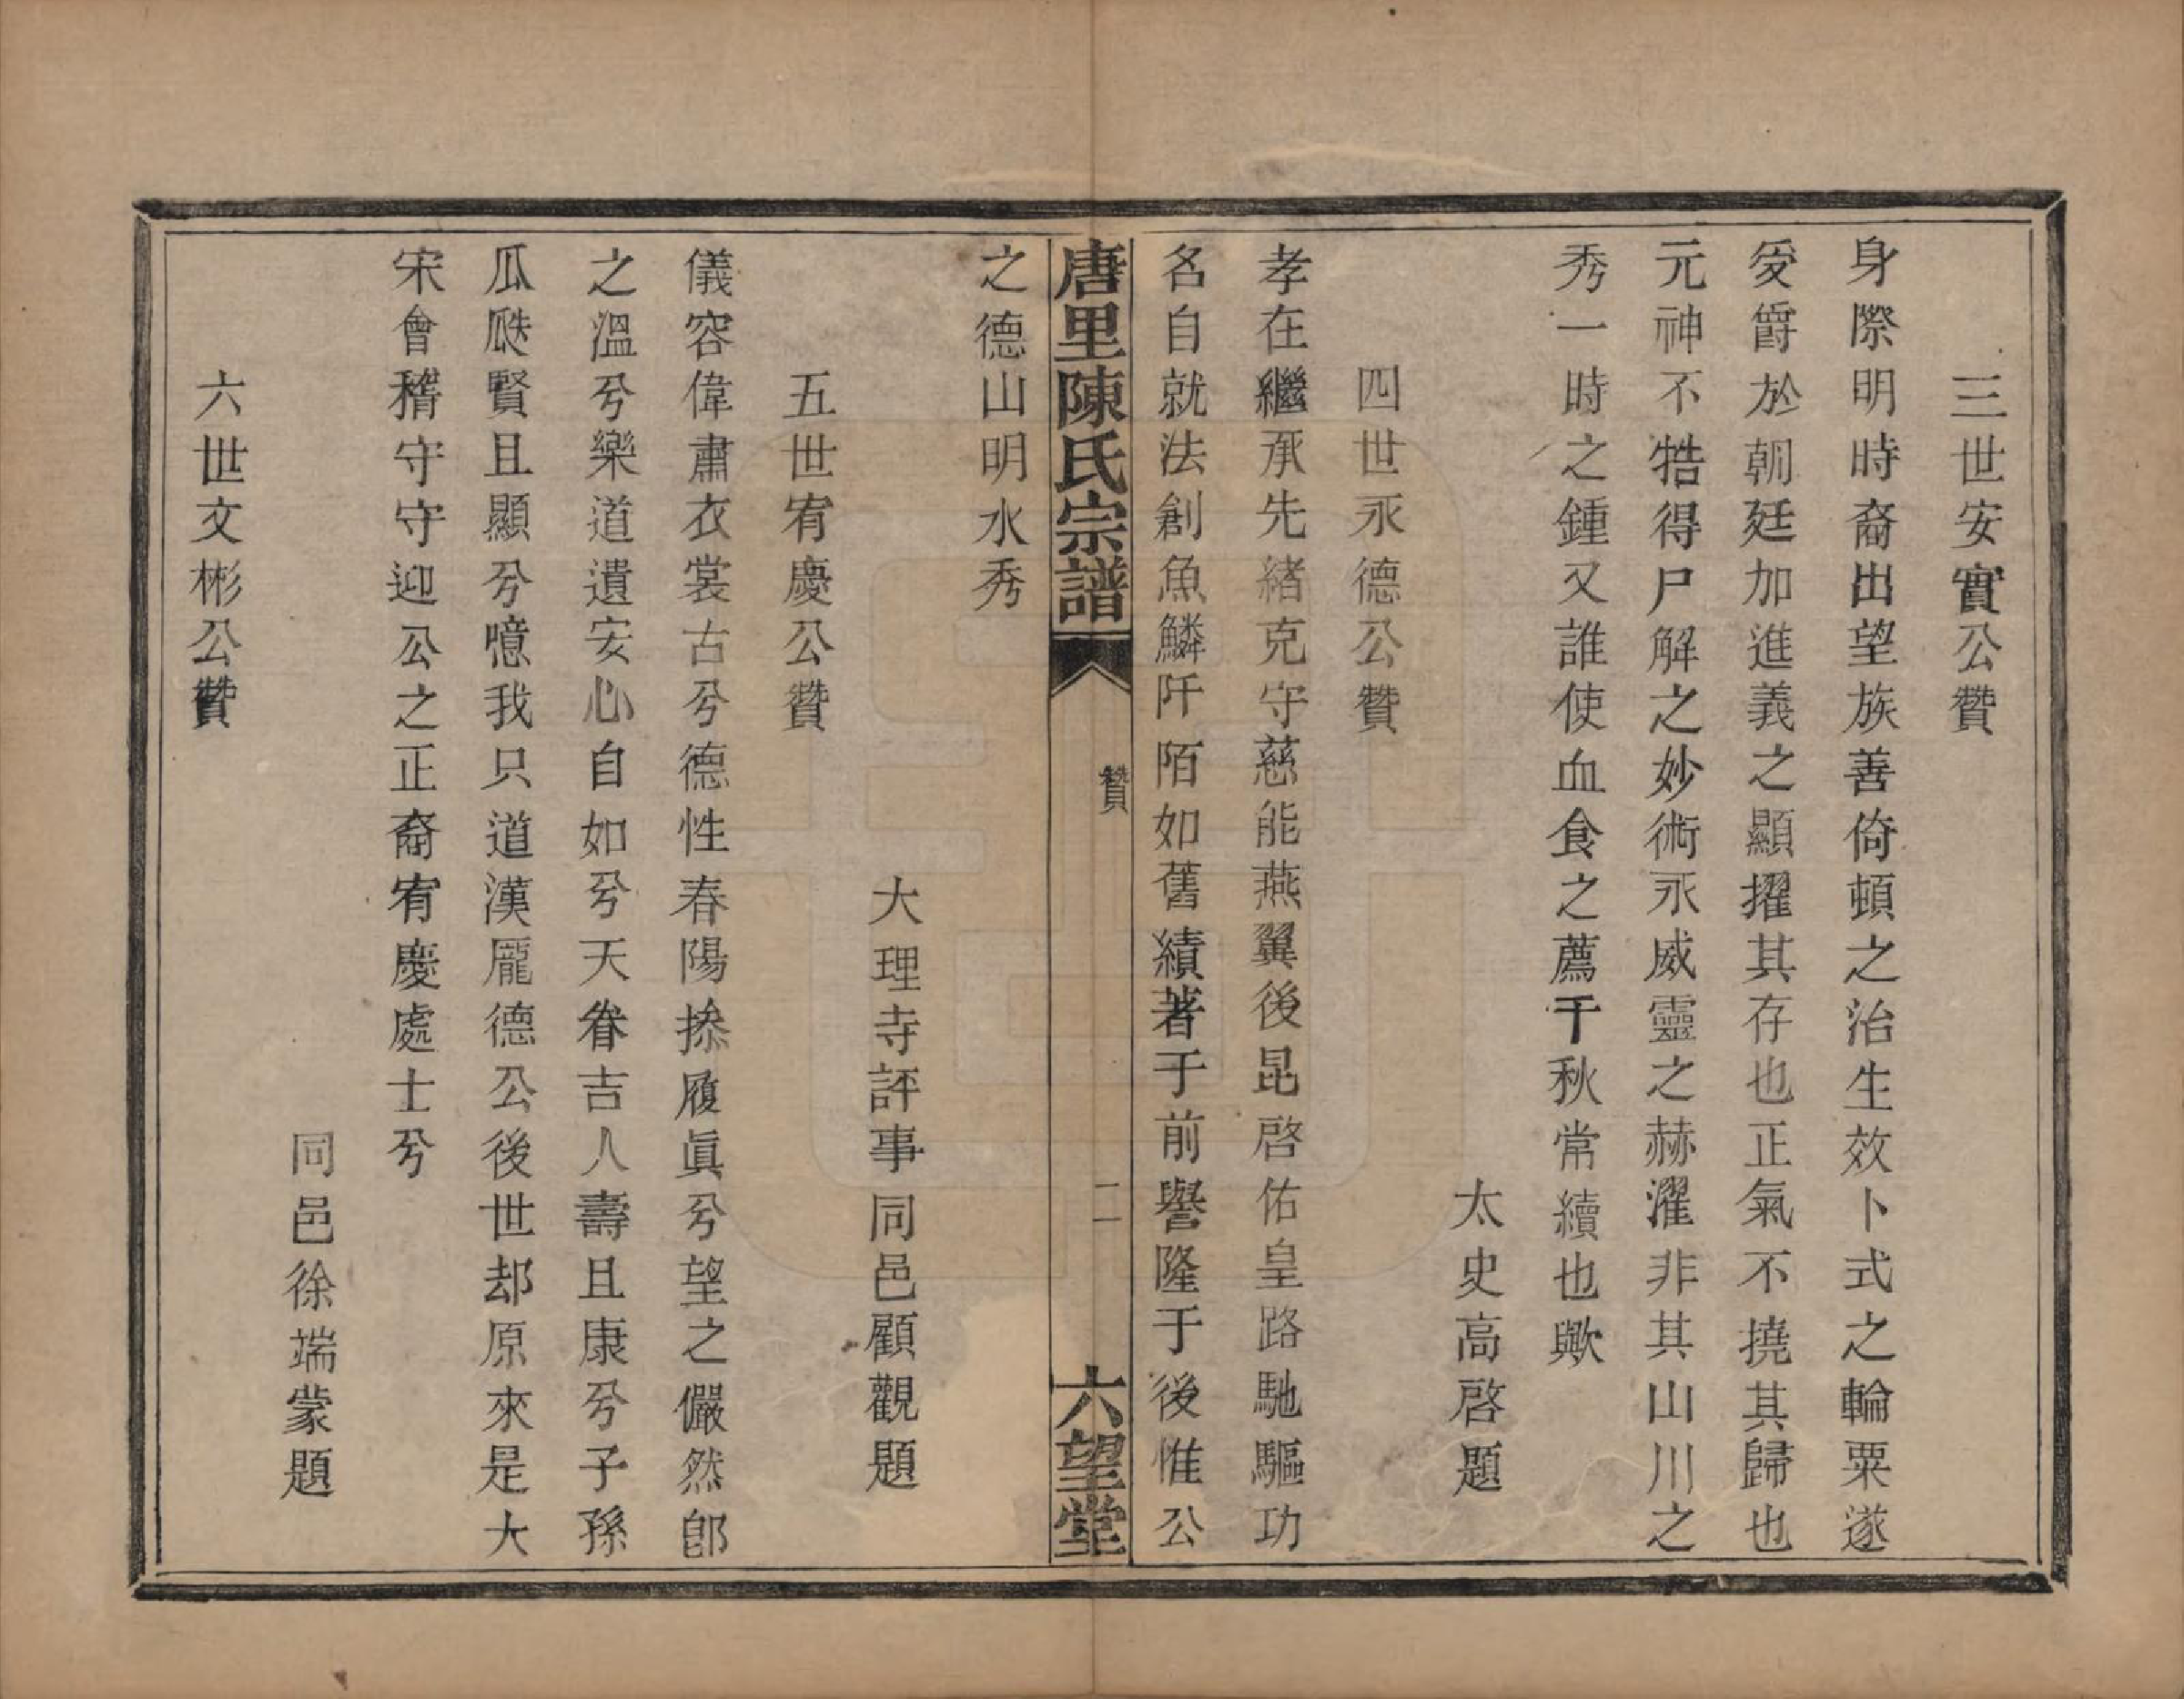 三世安實公贊
身際明時裔出望族善倚頓之治生效卜式之輪粟遂
受爵於朝廷加進義之顯擢其存也正氣不撓其歸也
元神不牿得尸解之妙術永威靈之赫濯非其山川之
秀一時之鍾又誰使血食之薦千秋常續也歟
太史高啓題
四世永德公贊
孝在繼承先緒克守慈能燕翼後昆啓佑皇路馳驅功
名自就法創魚鱗阡陌如舊績著于前譽隆于後惟公
唐里陳氏宗譜
贊
二
六望堂
之德山明水秀
大理寺評事同邑顧觀題
五世宥慶公贊
儀容偉肅衣裳古兮德性春陽操履眞兮望之儼然卽
之溫兮樂道遺安心自如兮天眷吉人壽且康兮子孫
瓜瓞賢且顯兮噫我只道漢龎德公後世却原來是大
宋會稽守守迎公之正裔宥慶處士兮
同邑徐端蒙題
六世文彬公贊